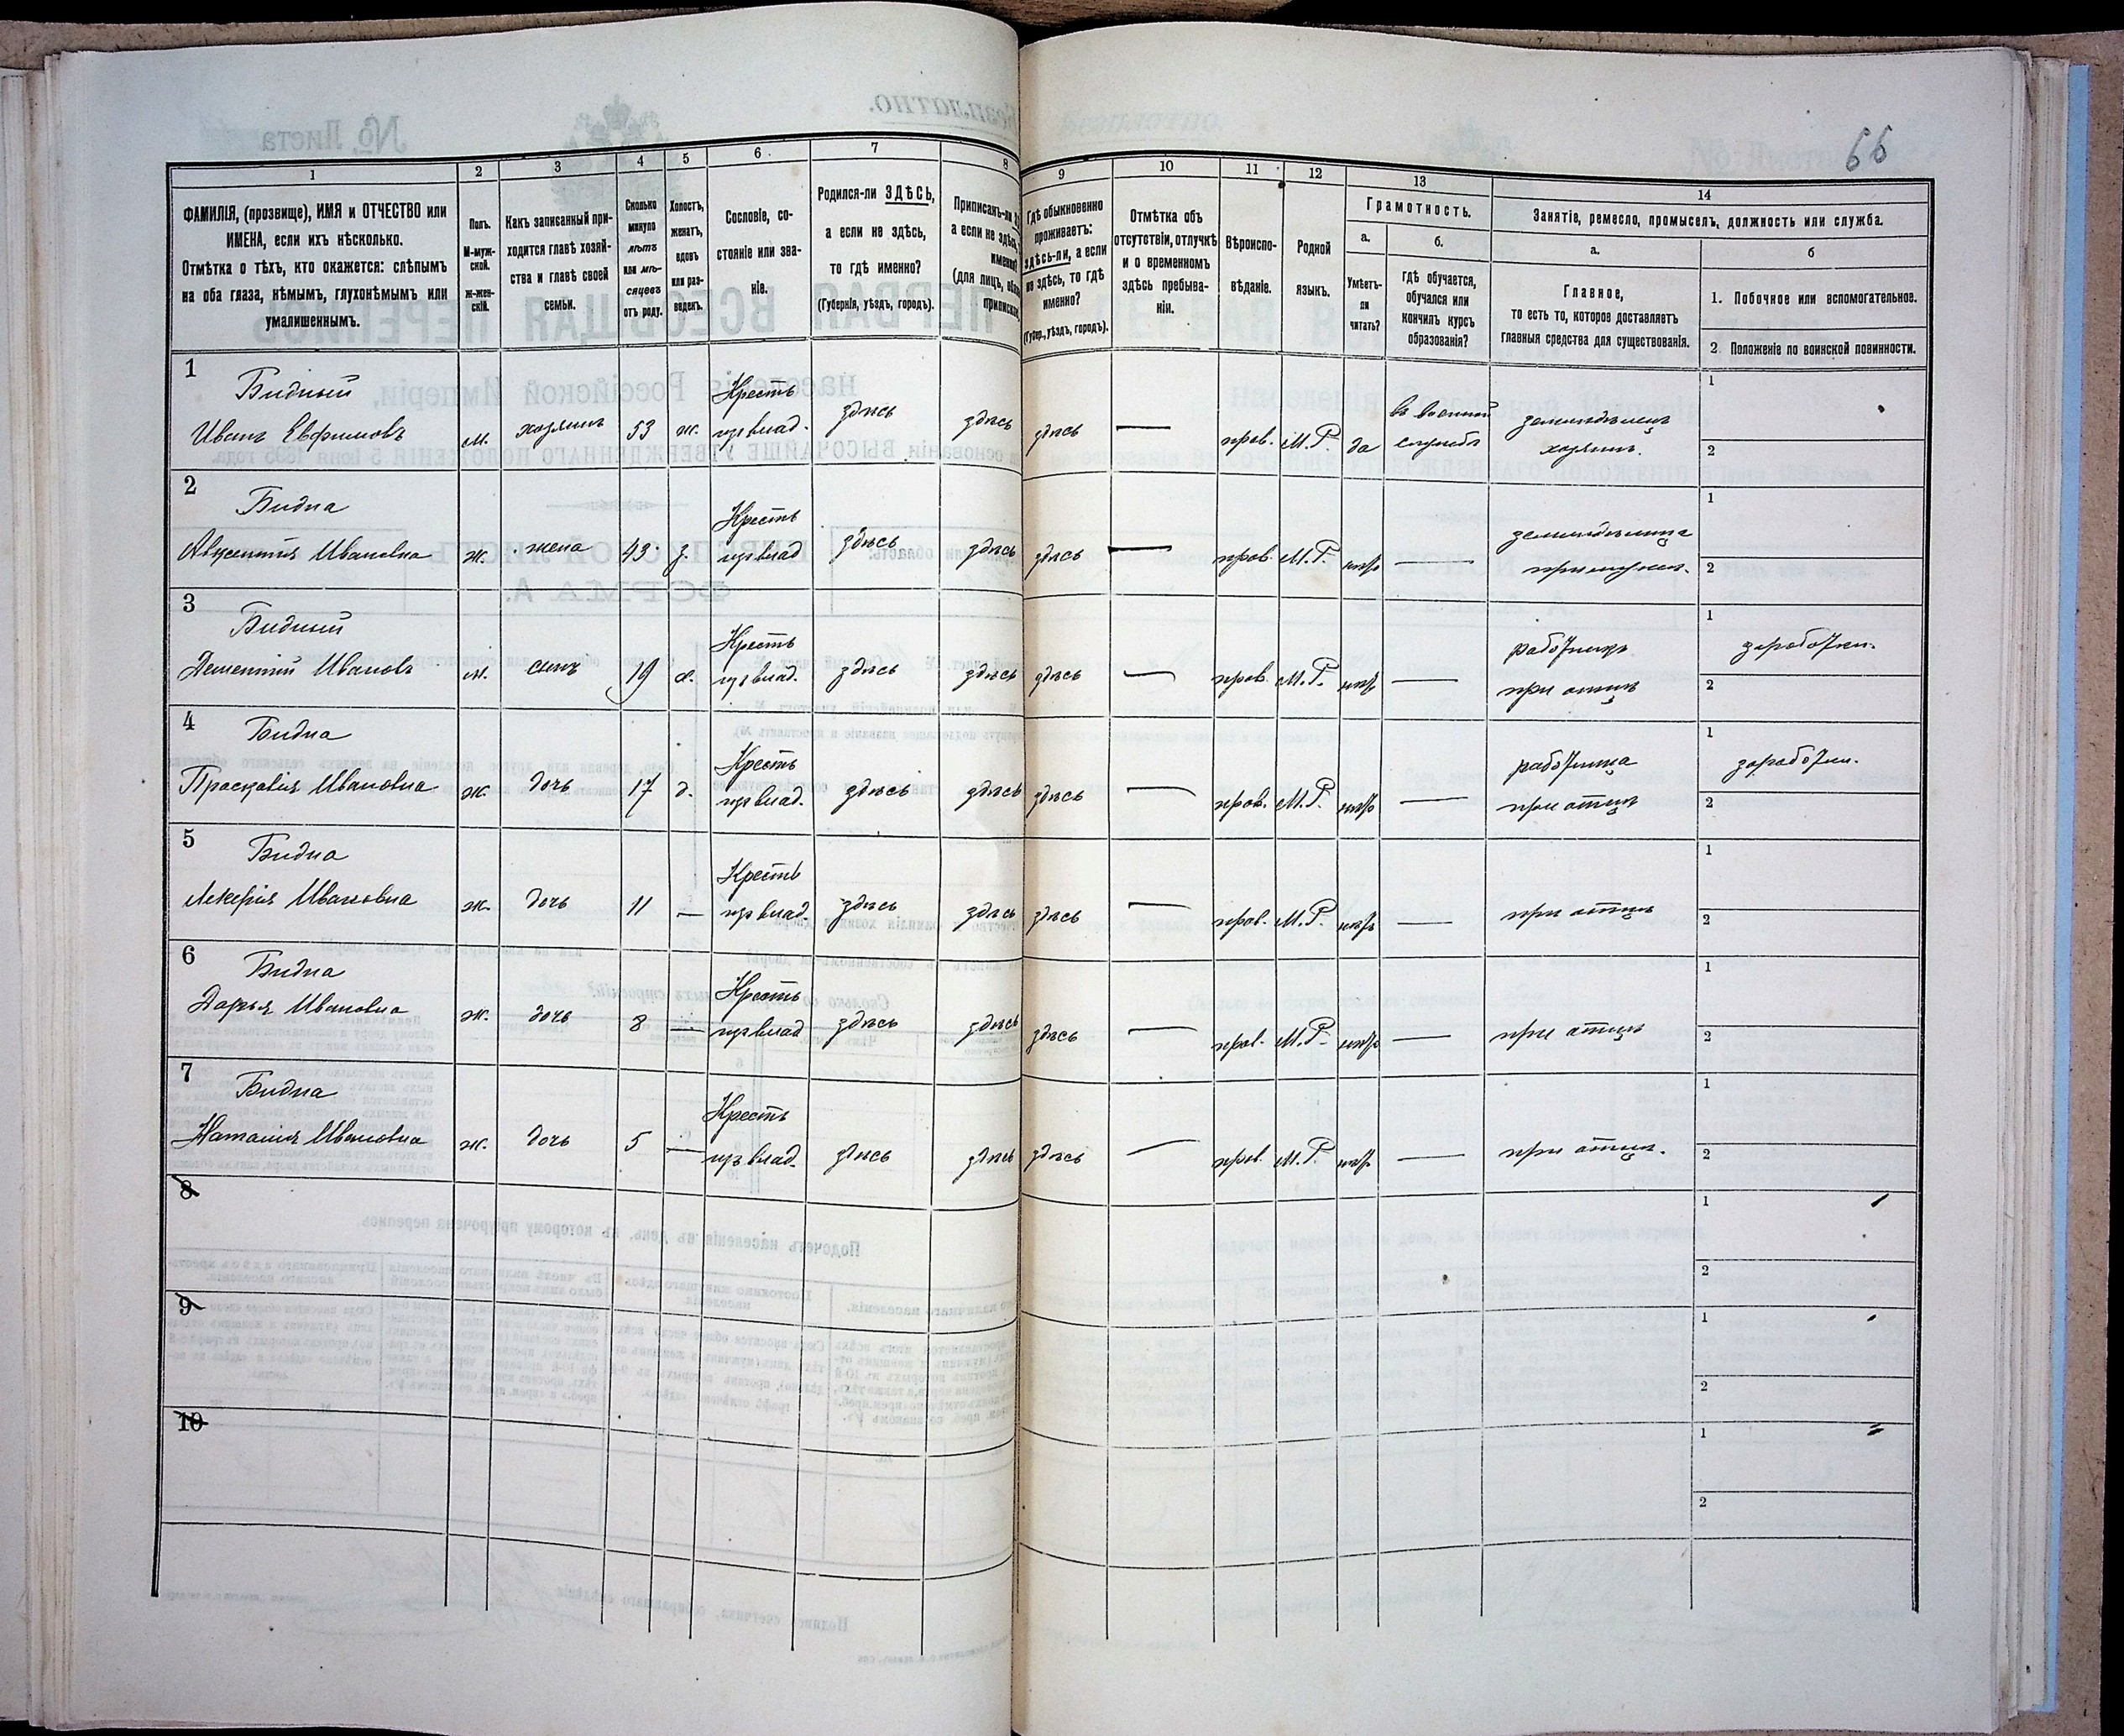 66
1
2
3
4
5
6
7
8
9
10
11
12
13
14
ФАМИЛІЯ, (прозвище), ИМЯ и ОТЧЕСТВО или
ИМЕНА, если ихъ нѣсколько.
Отмѣтка о тѣхъ, кто окажется: слѣпымъ
на оба глаза, нѣмымъ, глухонѣмымъ или
умалишеннымъ.
Полъ.
М-муж-
ской.
ж-жен-
скій.
Какъ записанный при-
ходится главѣ хозяй-
ства и главѣ своей
семьи.
Сколько
минуло
лѣтъ
или мѣ-
сяцевъ
отъ роду.
Холостъ,
женатъ,
вдовъ
или раз-
веденъ.
Сословіе, со-
стояніе или зва-
ніе.
Родился-ли ЗДѢСЬ,
а если не здѣсь,
то гдѣ именно?
(Губернія, уѣздъ, городъ).
Приписанъ-ли
а если не здѣсь,
именно?
(для лицъ,
Гдѣ обыкновенно
проживаетъ:
здѣсь-ли, а если
не здѣсь, то гдѣ
именно?
(Губер., уѣздъ, городъ).
Отмѣтка объ
отсутствіи, отлучкѣ
и о временномъ
здѣсь пребыва-
ніи.
Вѣроиспо-
вѣданіе.
Родной
языкъ.
Грамотность.
а.
б.
Умѣетъ-
ли
читать?
гдѣ обучается,
обучался или
кончилъ курсъ
образованія?
Занятіе, ремесло, промыселъ, должность или служба.
а.
б
Главное,
то есть то, которое доставляетъ
главныя средства для существованія.
1. Побочное или вспомогательное.
2 Положеніе по воинской повинности.
1
Бидный
Иванъ Евфимовъ
м.
хозяинъ
53
ж.
Кресть
из влад.
здѣсь
здѣсь
здѣсь
—
прав.
М.Р.
да
въ военной
службѣ
земледѣлецъ
хозяинъ.
1
2
2
Бидна
Авксентія Ивановна
ж.
жена
43
з.
Кресть
из влад
здѣсь
здѣсь
здѣсь
—
прав.
М.Р.
нѣтъ
—
земледѣлица
1
2
3
Бидный
Дементій Ивановъ
м.
сынъ
19
х.
Кресть
из влад.
здѣсь
здѣсь
здѣсь
—
прав.
М.Р.
нѣтъ
—
работникъ
при отцѣ
1
заработки.
2
4
Бидна
Прасковія Ивановна
ж.
дочь
17
д.
Кресть
из влад.
здѣсь
здѣсь
здѣсь
—
прав.
М.Р.
нѣтъ
—
работница
при отцѣ
1
заработки.
2
5
Бидна
Лекерія Ивановна
ж.
дочь
11
—
Кресть
из влад.
здѣсь
здѣсь
здѣсь
—
прав.
М.Р.
нѣтъ
—
при отцѣ
1
2
6
Бидна
Дарья Ивановна
ж.
дочь
8
—
Кресть
из влад
здѣсь
здѣсь
здѣсь
—
прав.
М.Р.
нѣтъ
—
при отцѣ
1
2
7
Бидна
Наталия Ивановна
ж.
дочь
5
—
Кресть
из влад.
здѣсь
здѣсь
здѣсь
—
прав.
М.Р.
нѣтъ
—
при отцѣ.
1
2
8
1
2
9
1
2
10
1
2